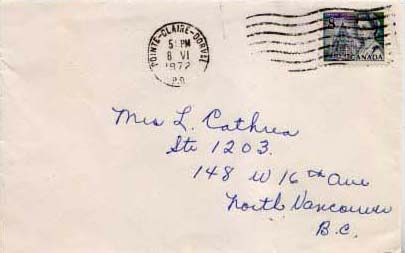 POINTE-CLAIRE-DORVAL
5 PM
8 VI
1972
P.Q.
8
CANADA
Mrs L. Cathrea
Ste 1203.
148 W 16th Ave
North Vancouver
B.C.